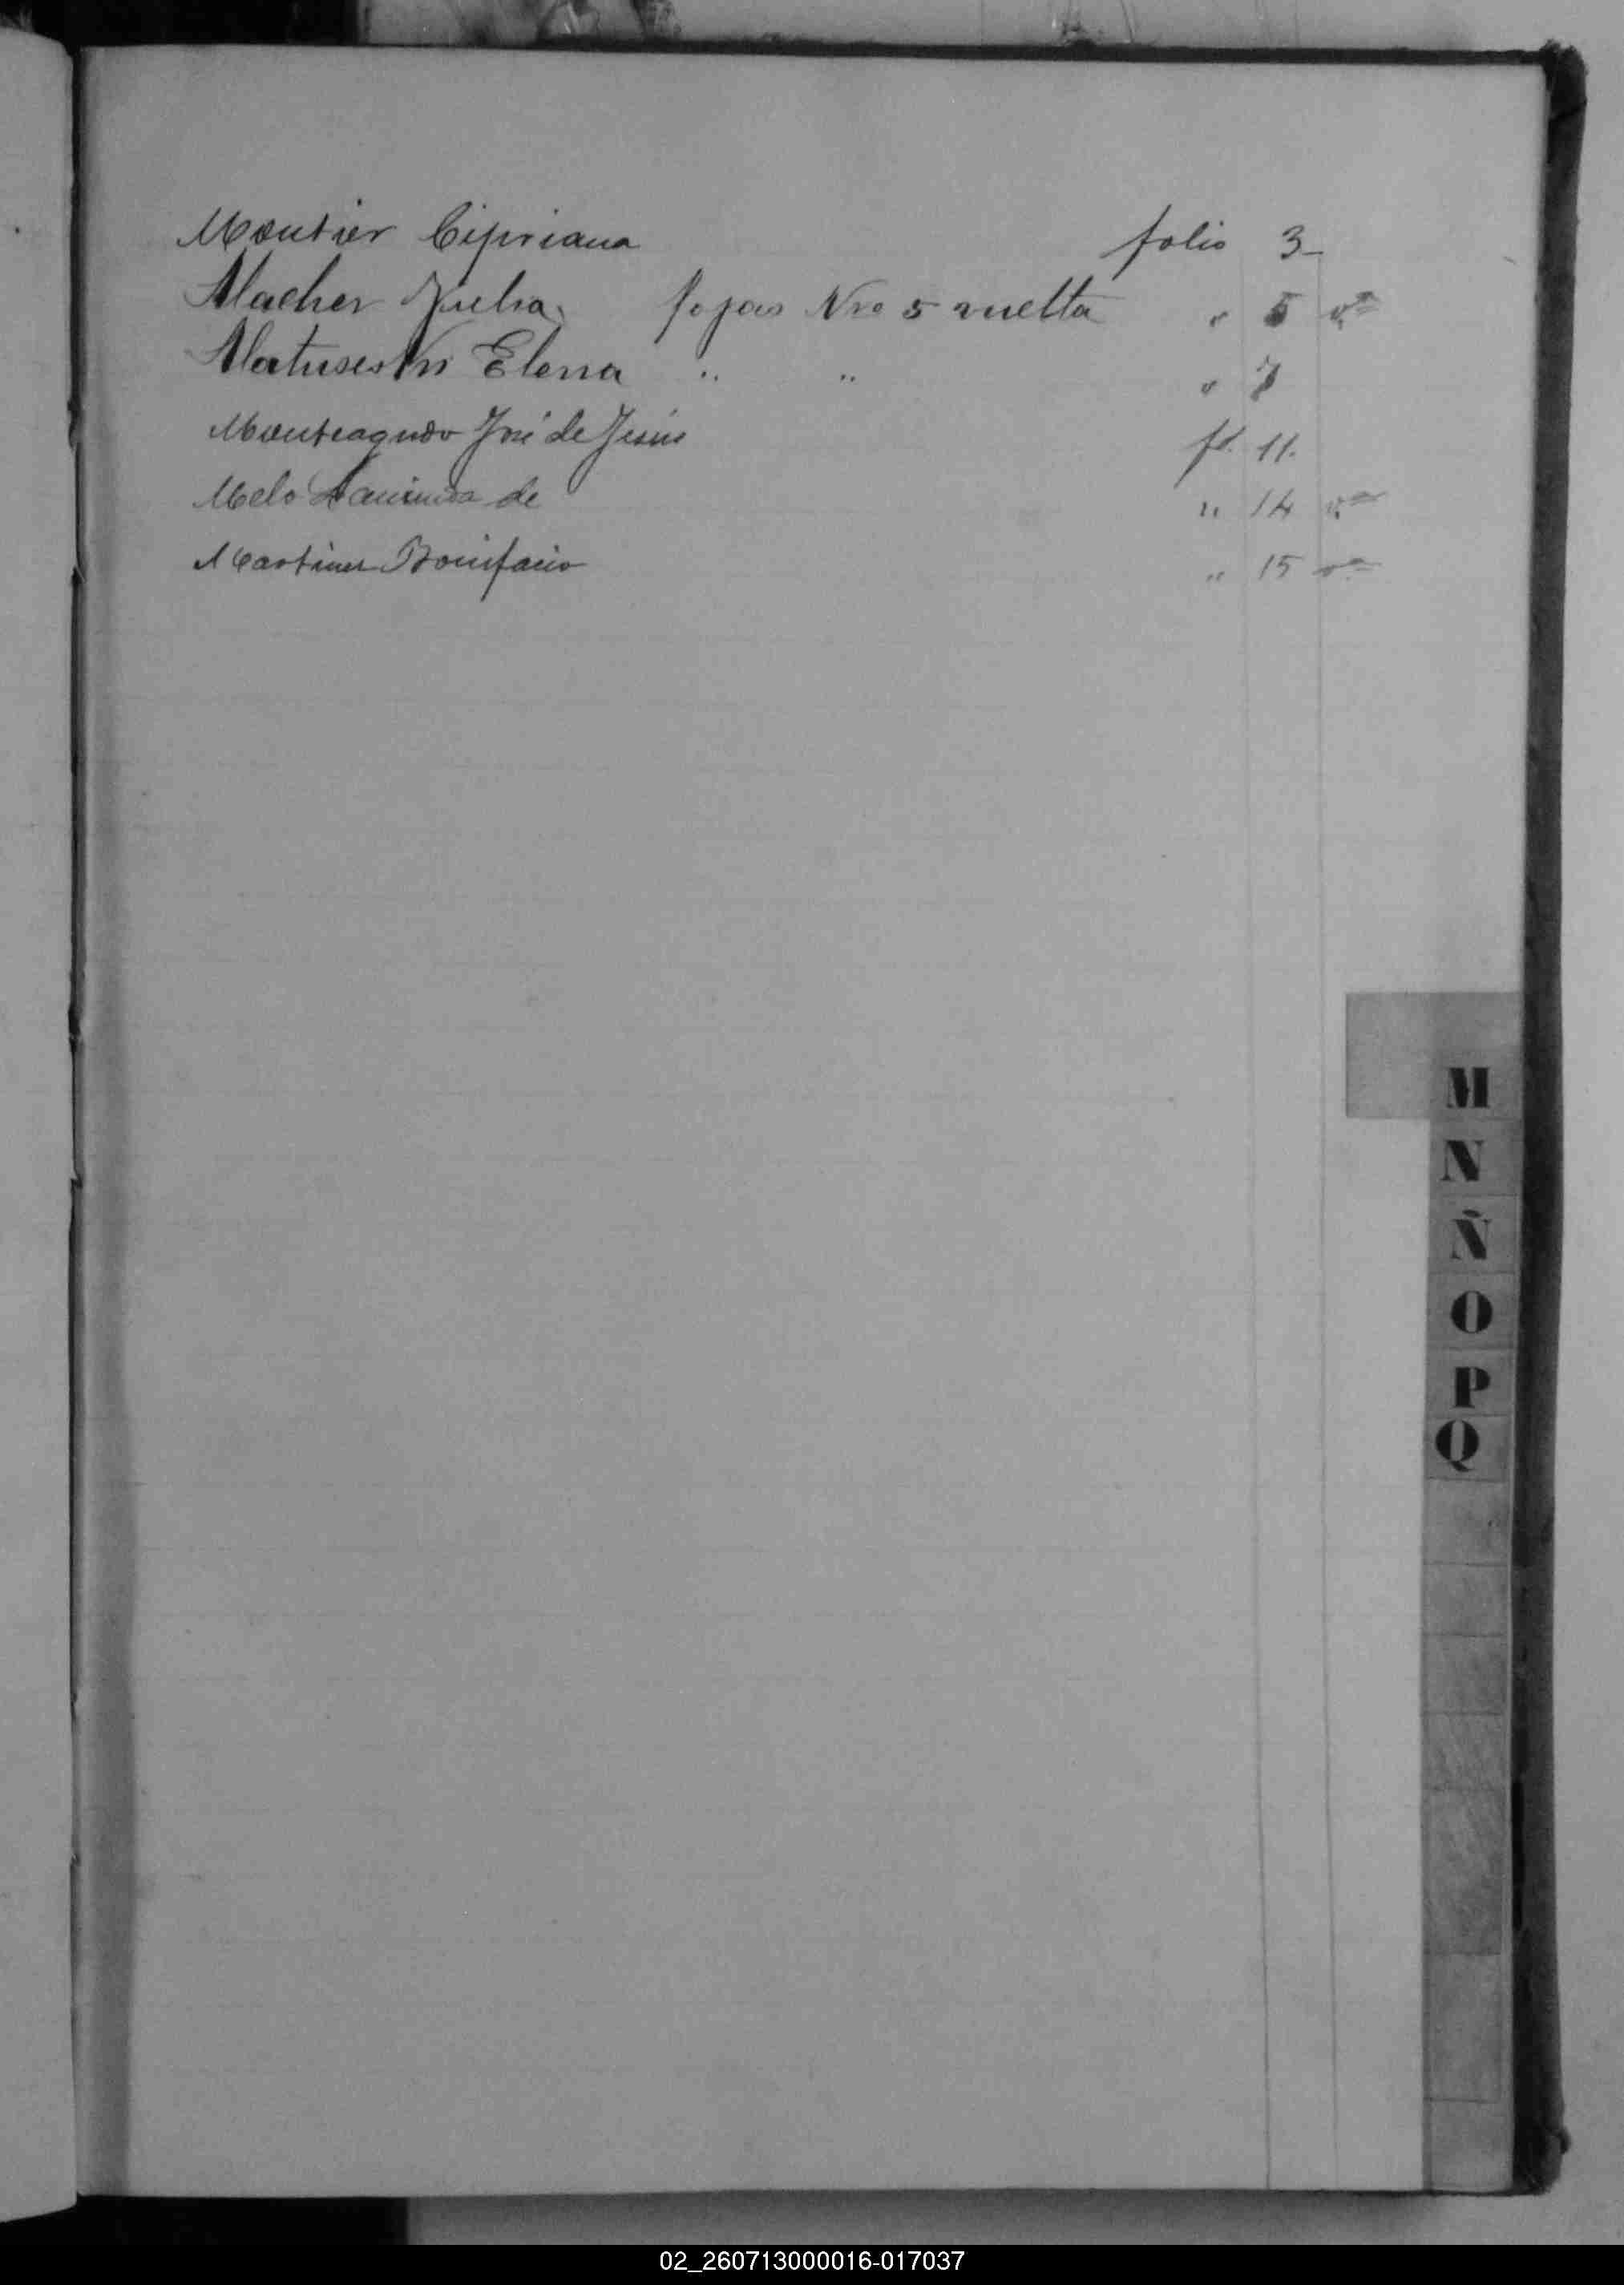 Montier Cipriana folio 3-
Macher Julia fojas Nro 5 vuelta " 5 vta
Matuseski Elena " " " 7
Monteagudo José de Jesús fl. 11.
Melo de " 14 vta
Martinez Bonifacio " 15 vta
M
N
Ñ
O
P
Q
02_260713000016-017037